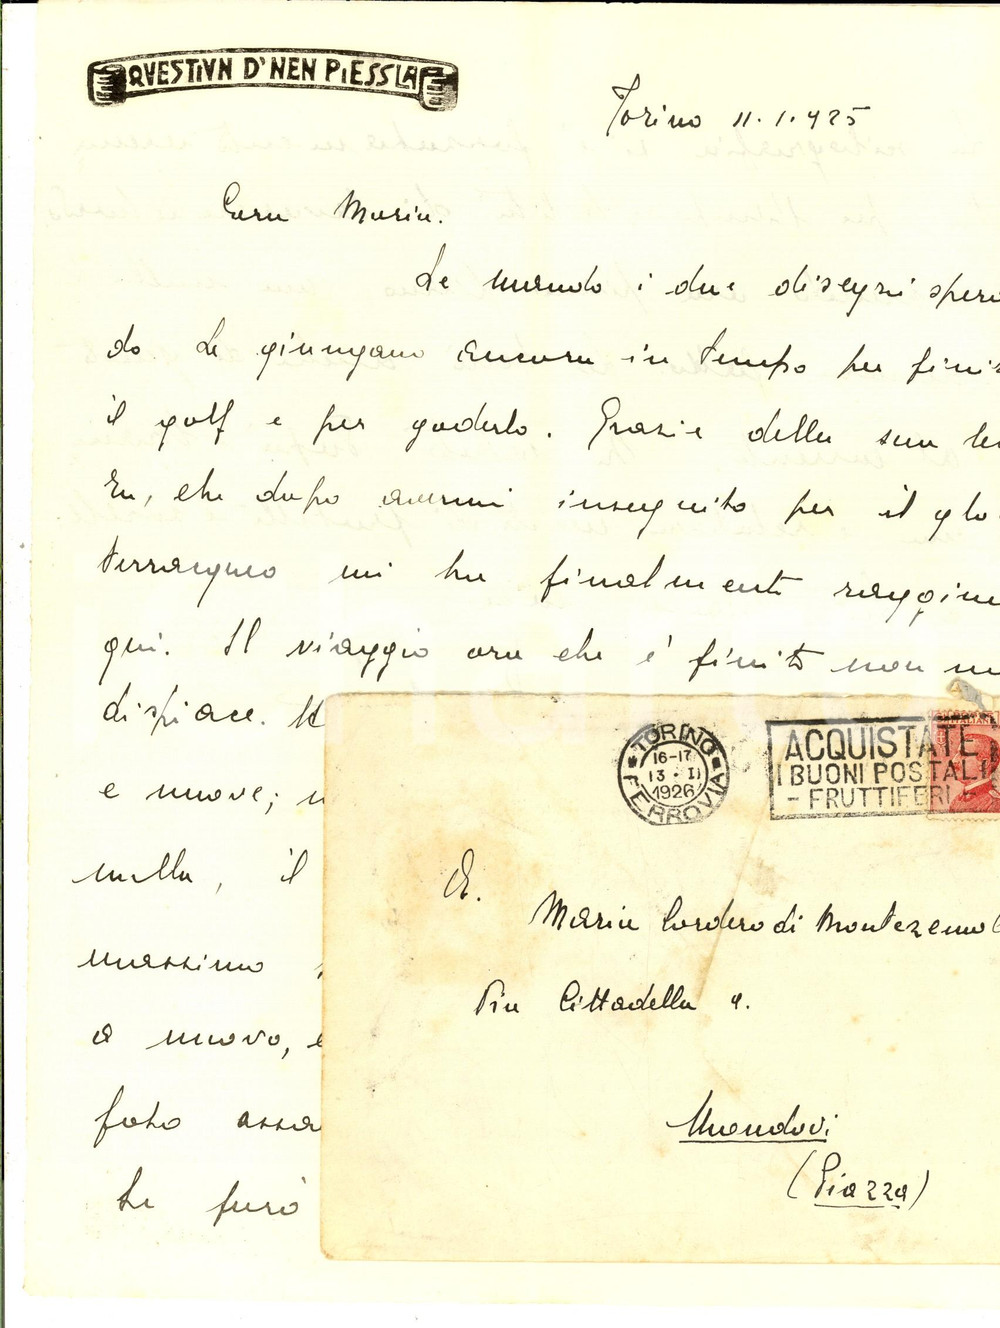 QVESTIVN D'NEN PIESSLA
Torino 11.1.925
Cara Maria.
Le mando i due disegni speran
do Le giungano ancora in tempo per finir
il golf e per goderlo. Grazie della sua let
ra, che dopo avermi inseguito per il glo
terracqueo mi ha finalmente raggiun
qui. Il viaggio ora che è finito non m
dispiace.
e nuove;
nulla, il
massimo
a nuovo, e
foto assa
Le farò
TORINO
16-17
13·II
1926
FERROVIA
ACQUISTATE
I BUONI POSTALI
- FRUTTIFERI -
A.
Maria Cordero di Montezemo
Via Cittadella 4.
Mondovi
(Piazza)